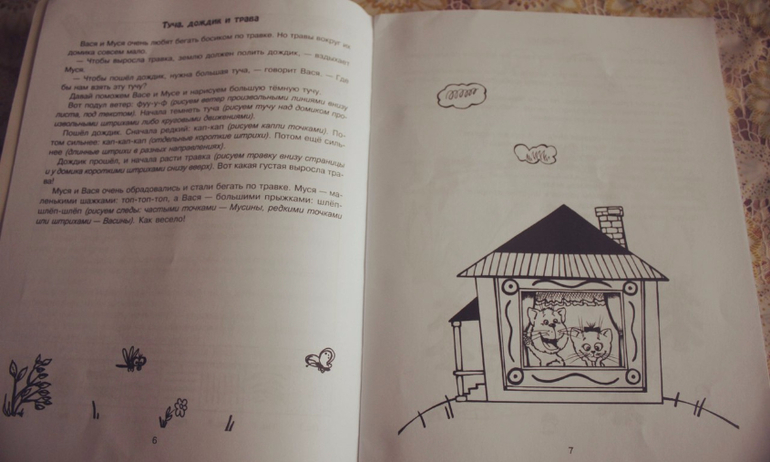 Туча, дождик и трава
Вася и Муся очень любят бегать босиком по травке. Но травы вокруг их
домика совсем мало.
— Чтобы выросла травка, землю должен полить дождик, — вздыхает
Муся.
— Чтобы пошёл дождик, нужна большая туча, — говорит Вася. — Где
бы нам взять эту тучу?
Давай поможем Васе и Мусе и нарисуем большую тёмную тучу.
Вот подул ветер: фуу-у-ф (рисуем ветер произвольными линиями внизу
листа, под текстом). Начала темнеть туча (рисуем тучу над домиком про-
извольными штрихами либо круговыми движениями).
Пошёл дождик. Сначала редкий: кап-кап (рисуем капли точками). По-
том сильнее: кап-кап-кап (отдельные короткие штрихи). Потом ещё силь-
нее (длинные штрихи в разных направлениях).
Дождик прошёл, и начала расти травка (рисуем травку внизу страницы
и у домика короткими штрихами снизу вверх). Вот какая густая выросла тра-
ва!
Муся и Вася очень обрадовались и стали бегать по травке. Муся — ма-
ленькими шажками: топ-топ-топ, а Вася — большими прыжками: шлёп-
шлёп-шлёп (рисуем следы: частыми точками — Мусины, редкими точками
или штрихами — Васины). Как весело!
6
7